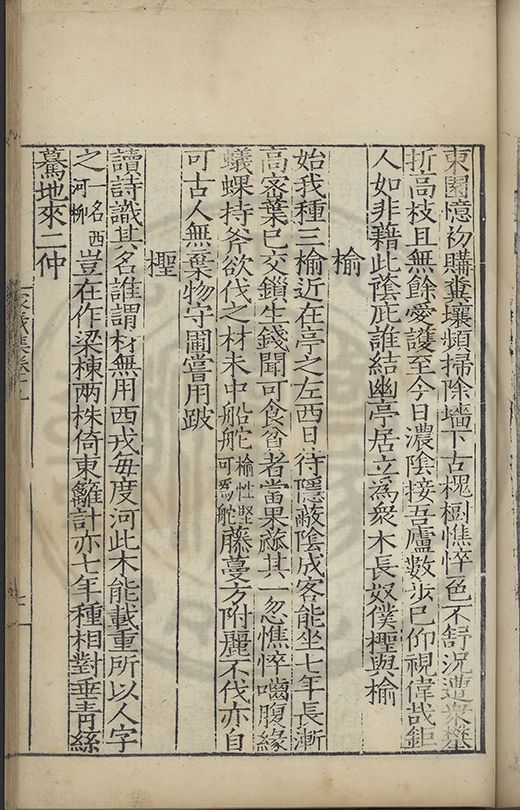 東闌憶初購糞壤頻掃除墻下古槐樹憔悴色不舒況遭衆攀
折高枝且無餘愛護至今日濃陰接吾廬數步已仰視偉哉鉅
人如非藉此蔭庇誰結幽亭居立為衆木長奴僕檉與榆
榆
始我種三榆近在亭之左西日待隱蔽陰成客能坐七年長漸
高密葉已交鎖生錢聞可食貧者當果蓏其一忽憔悴嚙腹緣
蟻蜾持斧欲伐之材未中船舵榆性堅可為舵藤蔓方附麗不伐亦自
可古人無棄物守圃嘗用跛
檉
讀詩識其名誰謂材無用西戎毎度河此木能載重所以人字
之一名西河栁豈在作梁棟兩株倚東籬計亦七年種相對垂青絲
驀地來二仲